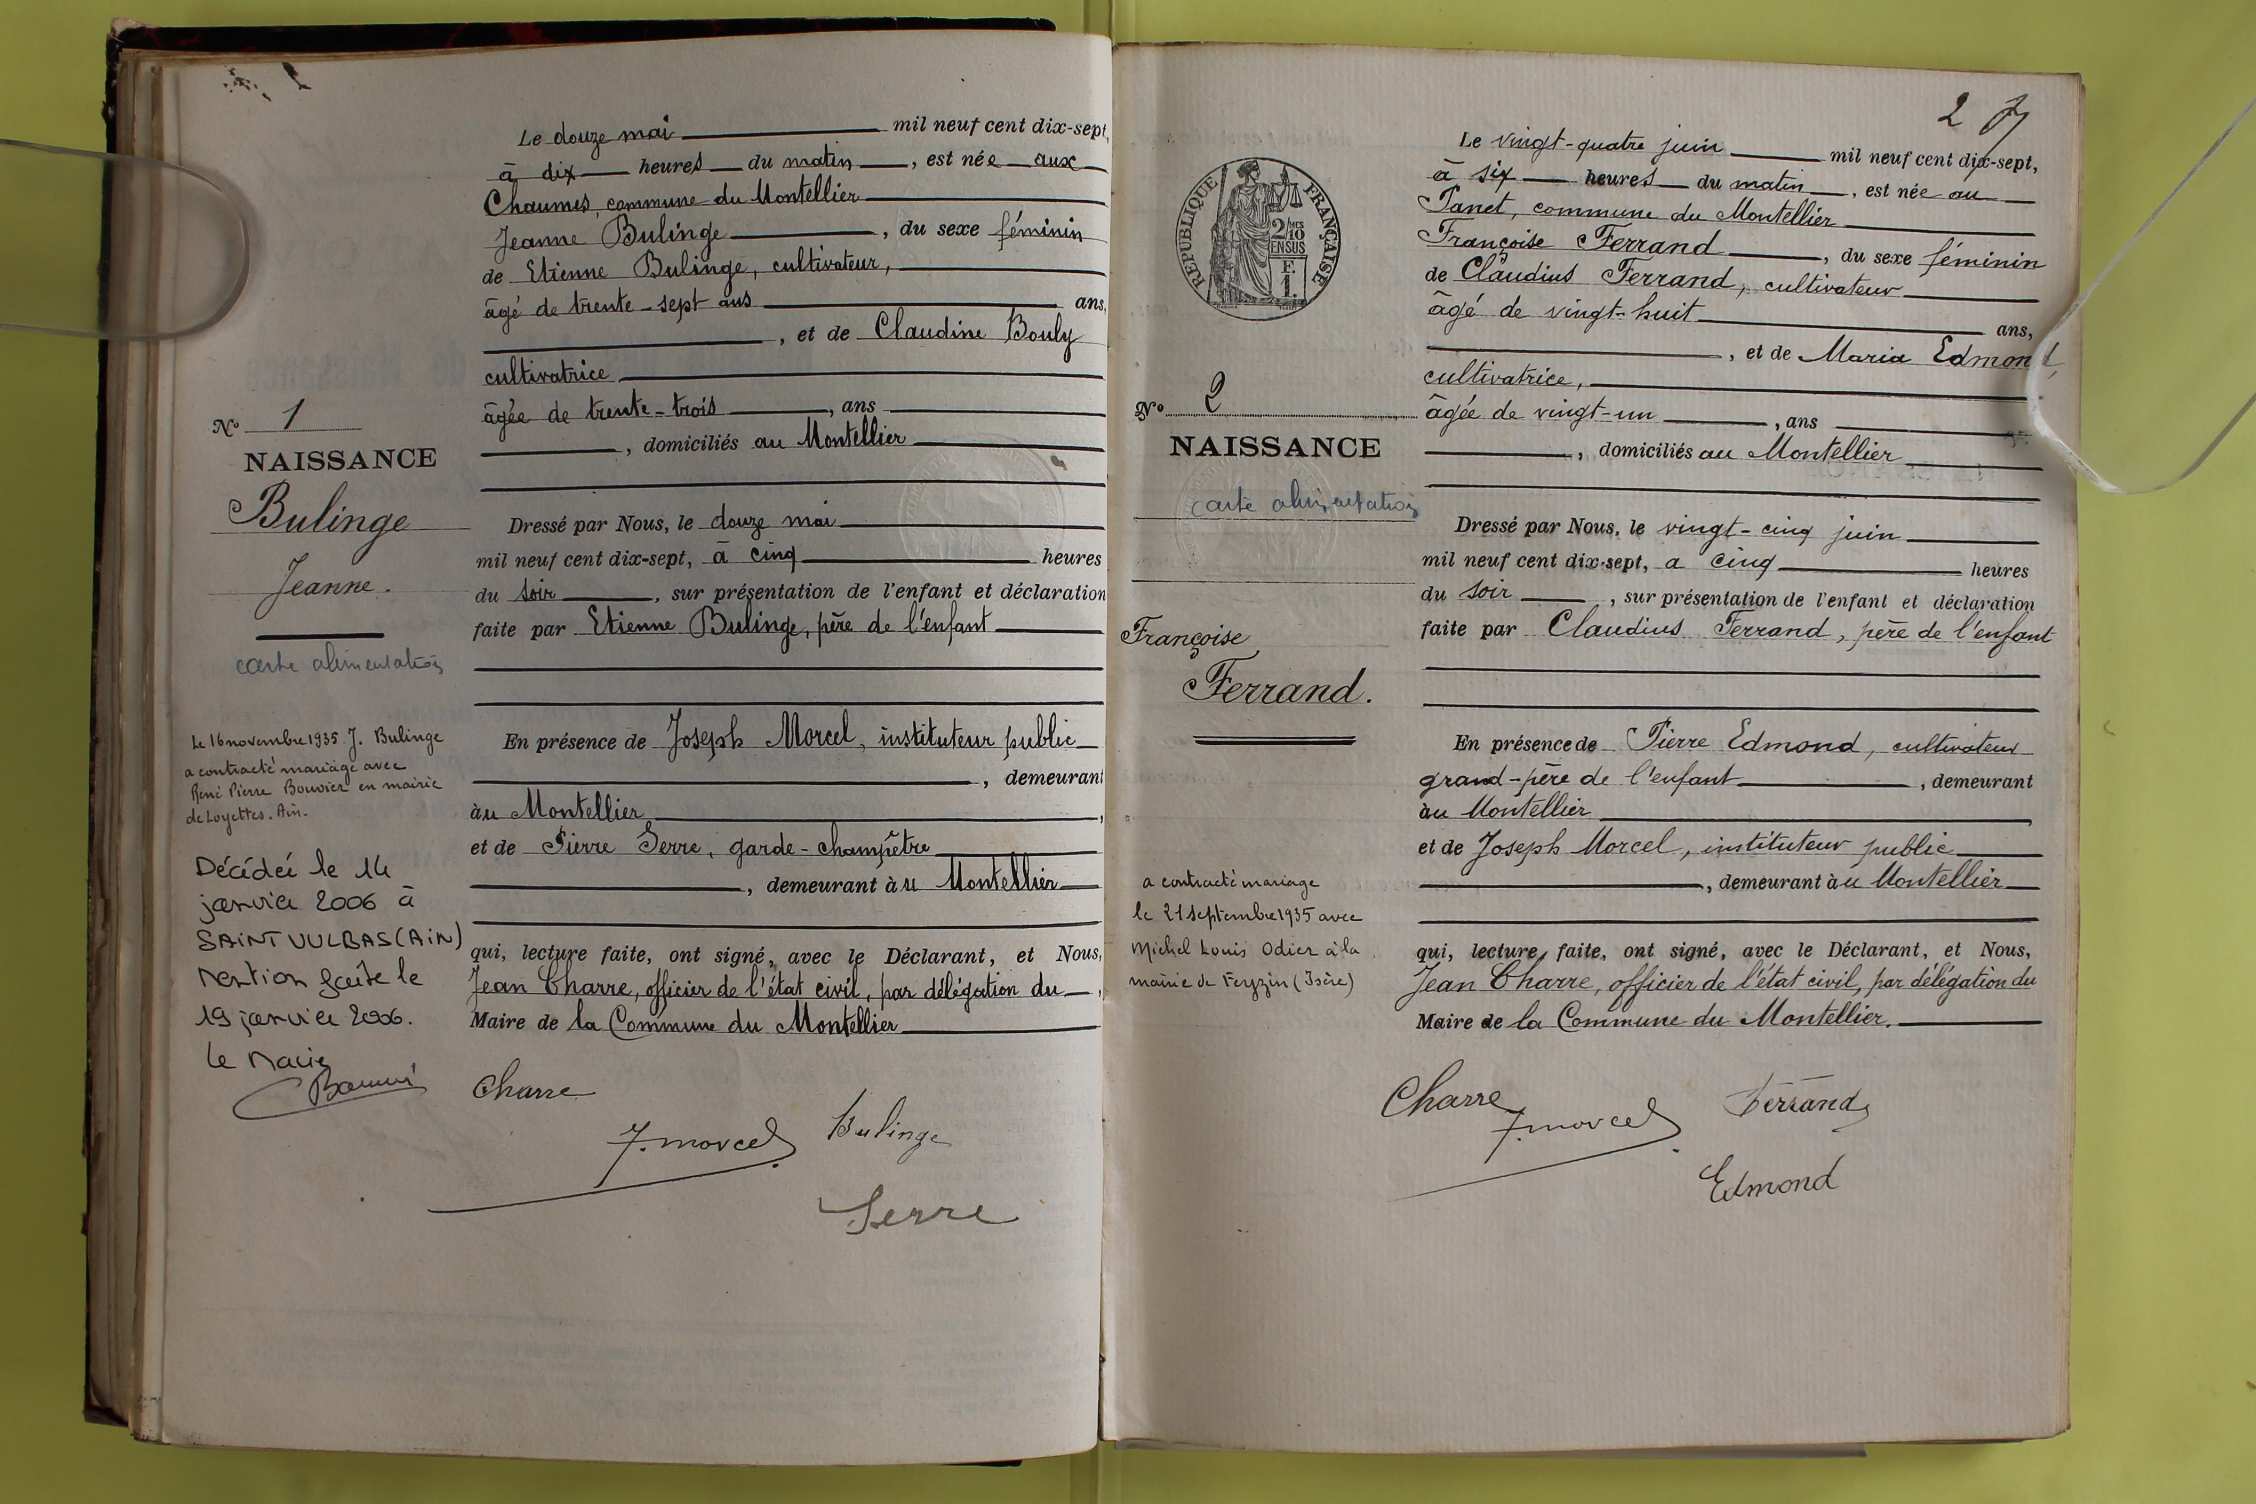 Le douze mai mil neuf cent dix-sept,
à dix heures du matin, est née aux
Chaumes, commune du Montellier
Jeanne Bulinge, du sexe féminin
de Etienne Bulinge, cultivateur,
âgé de trente-sept ans ans,
, et de Claudine Bouly
cultivatrice
âgée de trente-trois, ans
, domiciliés au Montellier
N° 1
NAISSANCE
Bulinge
Jeanne.
carte alimentation
Dressé par Nous, le douze mai
mil neuf cent dix-sept, à cinq heures
du soir, sur présentation de l'enfant et déclaration
faite par Etienne Bulinge, père de l'enfant
Le 16 novembre 1935 J. Bulinge
a contracté mariage avec
René Pierre Bouvier en mairie
de Loyettes. Ain.
Décédée le 14
janvier 2006 à
SAINT VULBAS (AIN)
Mention faite le
19 janvier 2006.
Le Maire
En présence de Joseph Morcel, instituteur public
, demeurant
à au Montellier,
et de Pierre Serre, garde-champêtre
, demeurant à au Montellier
qui, lecture faite, ont signé, avec le Déclarant, et Nous,
Jean Charre, officier de l'état civil, par délégation du,
Maire de la Commune du Montellier
Charre
J. Morcel
Bulinge
Serre
2
Le vingt-quatre juin mil neuf cent dix-sept,
à six heures du matin, est née au
Panet, commune du Montellier
Françoise Ferrand, du sexe féminin
de Claudius Ferrand, cultivateur
âgé de vingt-huit ans,
, et de Maria Edmond,
cultivatrice,
âgée de vingt-un, ans
, domiciliés au Montellier
RÉPUBLIQUE FRANÇAISE
2/10
EN SUS
F.
1.
N° 2
NAISSANCE
carte alimentation
Françoise
Ferrand.
a contracté mariage
le 21 septembre 1935 avec
Michel Louis Odier à la
mairie de Feyzin (Isère)
Dressé par Nous, le vingt-cinq juin
mil neuf cent dix-sept, a cinq heures
du soir, sur présentation de l'enfant et déclaration
faite par Claudius Ferrand, père de l'enfant
En présence de Pierre Edmond, cultivateur
grand-père de l'enfant, demeurant
à au Montellier
et de Joseph Morcel, instituteur public
, demeurant à au Montellier
qui, lecture faite, ont signé, avec le Déclarant, et Nous,
Jean Charre, officier de l'état civil, par délégation du
Maire de la Commune du Montellier.
Charre
J. Morcel
Ferrand
Edmond